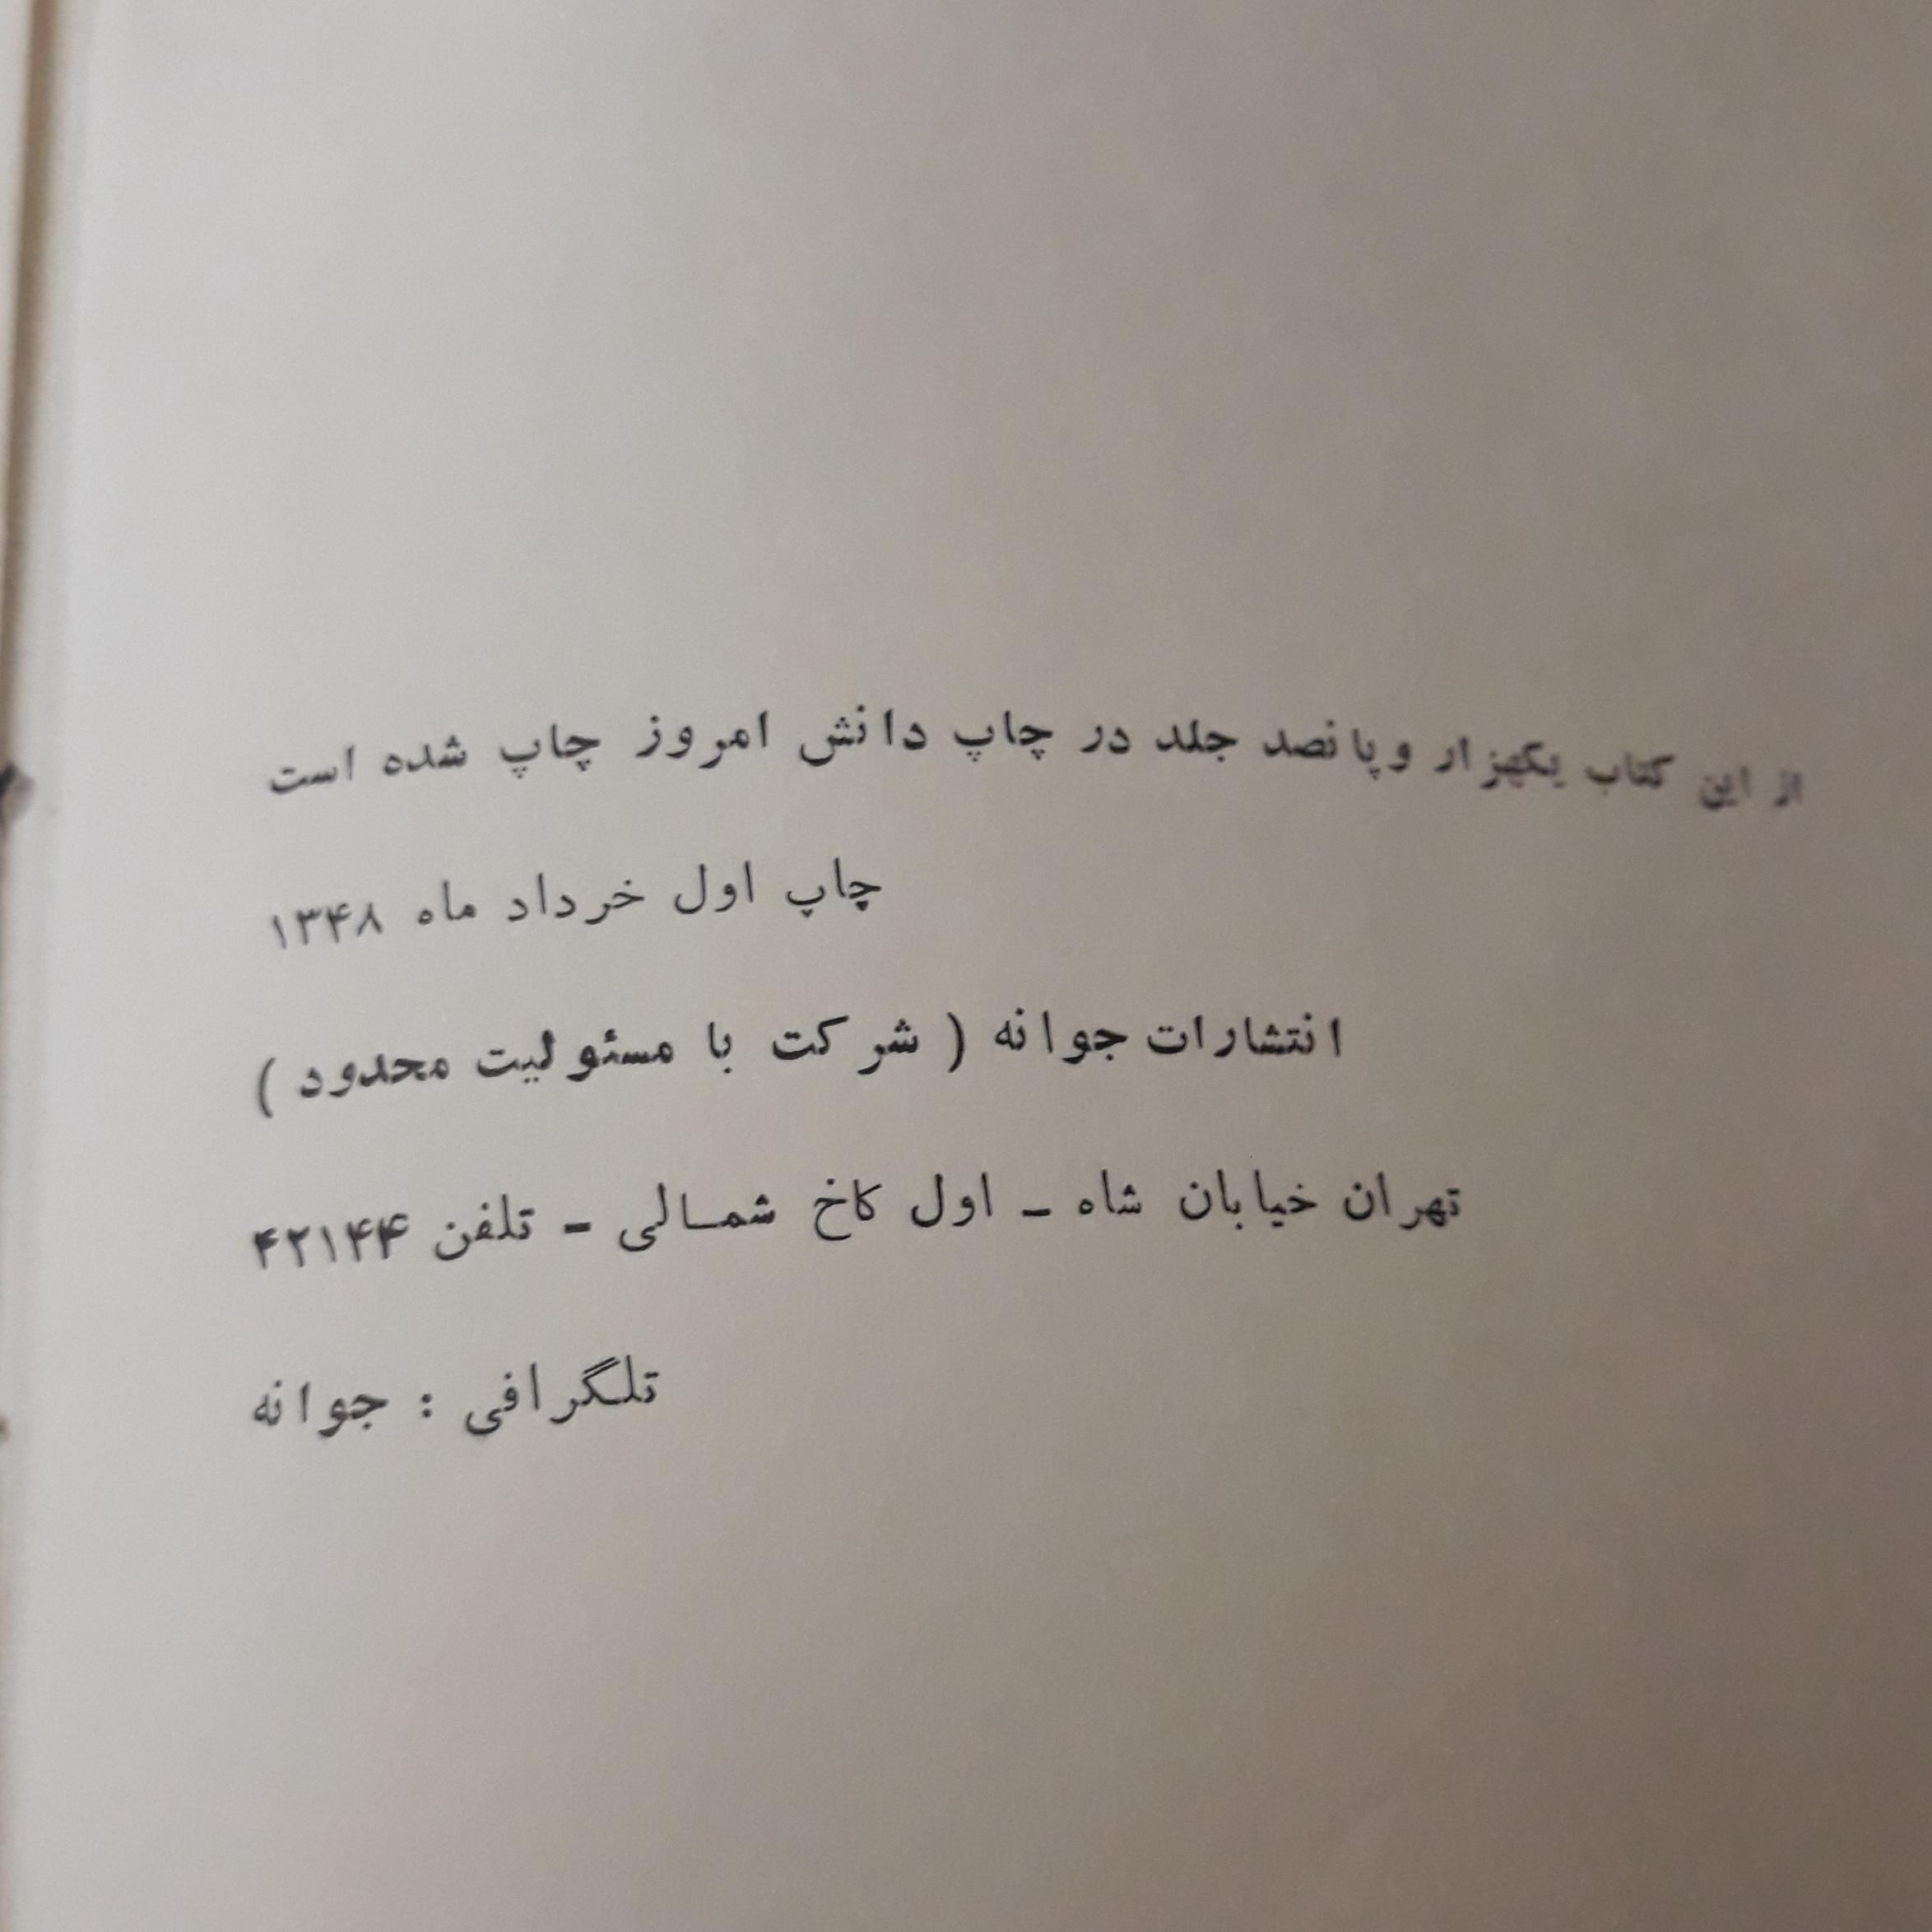 از این کتاب یکهزار و پانصد جلد در چاپ دانش امروز چاپ شده است
چاپ اول خرداد ماه ۱۳۴۸
انتشارات جوانه ( شرکت با مسئولیت محدود )
تهران خیابان شاه ـ اول کاخ شمالی ـ تلفن ۴۲۱۴۴
تلگرافی : جوانه